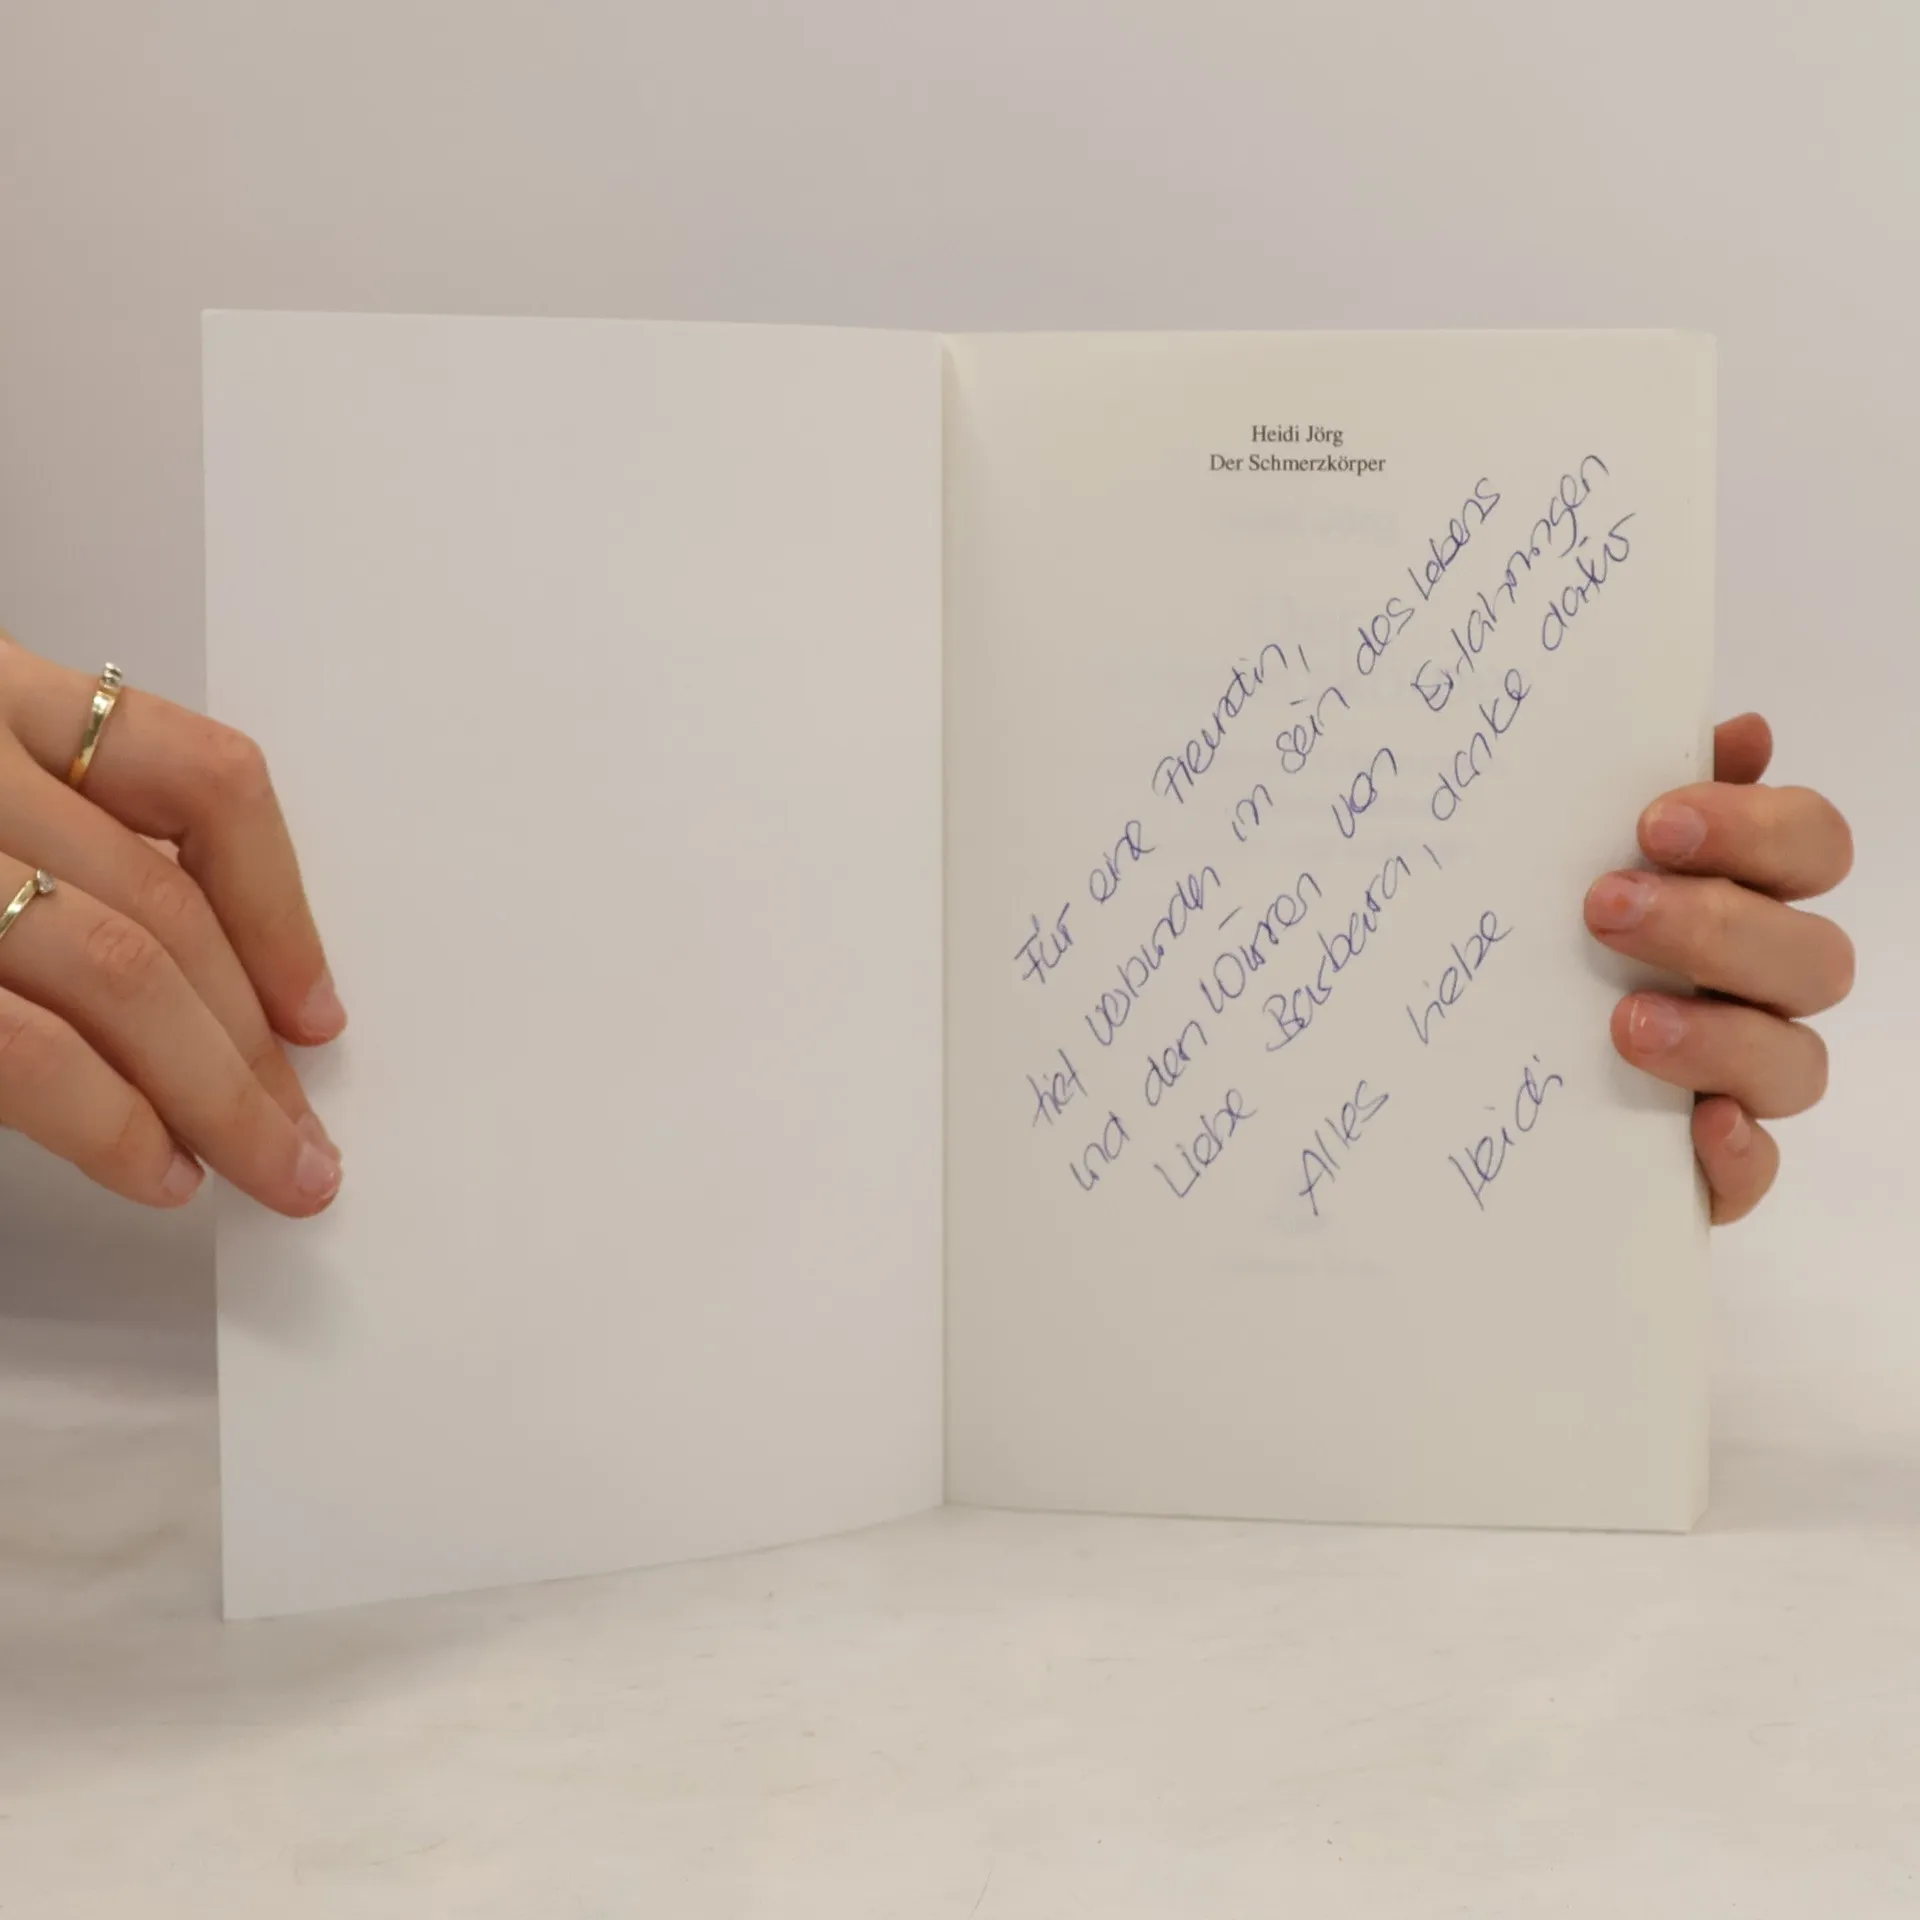 Heidi Jörg
Der Schmerzkörper
Für eine Freundin,
tief verbunden in sein des Lebens
und den Wirren von Erfahrungen
Liebe Barbara, danke dafür
Alles Liebe
Heidi